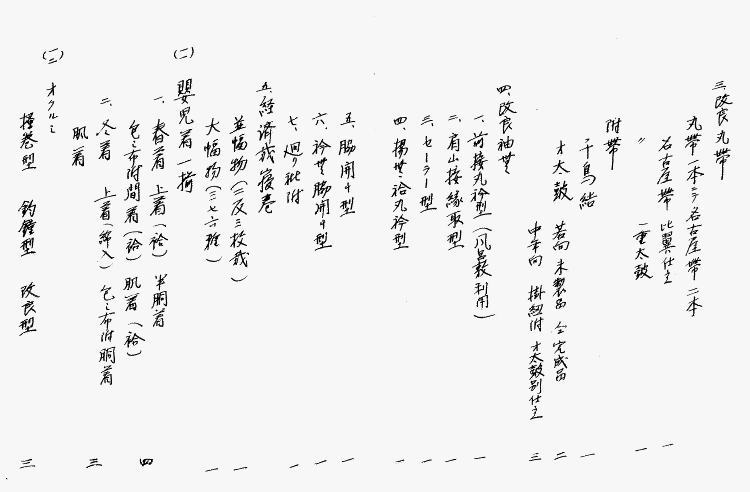 三、改良丸帯
丸帯一本ニテ名古屋帯二本
名古屋帯 比翼仕立 一
〃 一重太鼓 一
附帯
千鳥結 一
オ太鼓 若向 未製品 仝完成品 二
中年向 掛紐附 オ太鼓別仕立 三
四、改良袖無
一、前接丸衿型(風呂敷利用) 一
二、肩山接縁取型 一
三、セーラー型 一
四、揚無袷丸衿型 一
五、脇開キ型 一
六、衿無脇開キ型 一
七、廻リ紐附 一
五、経済裁
並幅物(二反三枚裁) 一
大幅物 一
(一)嬰児着一揃
一、春着 上着(袷) 半胴着
包ミ布附間着(袷) 肌着(袷) 四
二、冬着 上着(綿入) 包ミ布附胴着
肌着 三
(二)オクルミ
釣鐘型 改良型 三